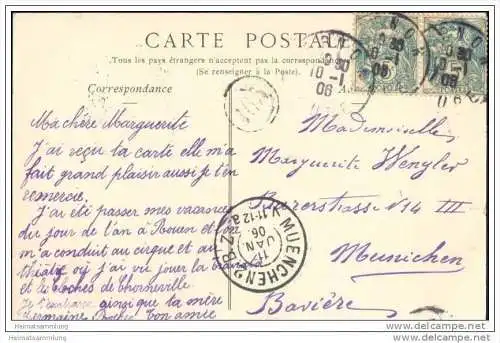 CARTE POSTALE
Tous les pays étrangers n'acceptent pas la correspondance
(Se renseigner à la Poste.)
Correspondance
Ma chère Marguerite
J'ai reçu la carte elle m'a
fait grand plaisir aussi je t'en
remercie.
J'ai été passer mes vacances
du jour de l'an à Rouen et on
m'a conduit au cirque et au
théâtre où j'ai vu jouer la
et les cloches de Corneville.
Je t'embrasse ainsi que ta mère
Germaine ton amie
Mademoiselle
Marguerite Wengler
N 14 III
Munichen
Bavière
MUENCHEN
11
JAN
06
V. 11-12 a
Heimatsammlung
www.delcampe.net